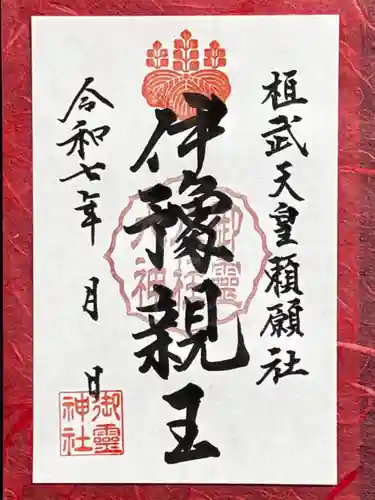 桓武天皇頼願社
伊豫親王
令和七年 月 日
御靈神社